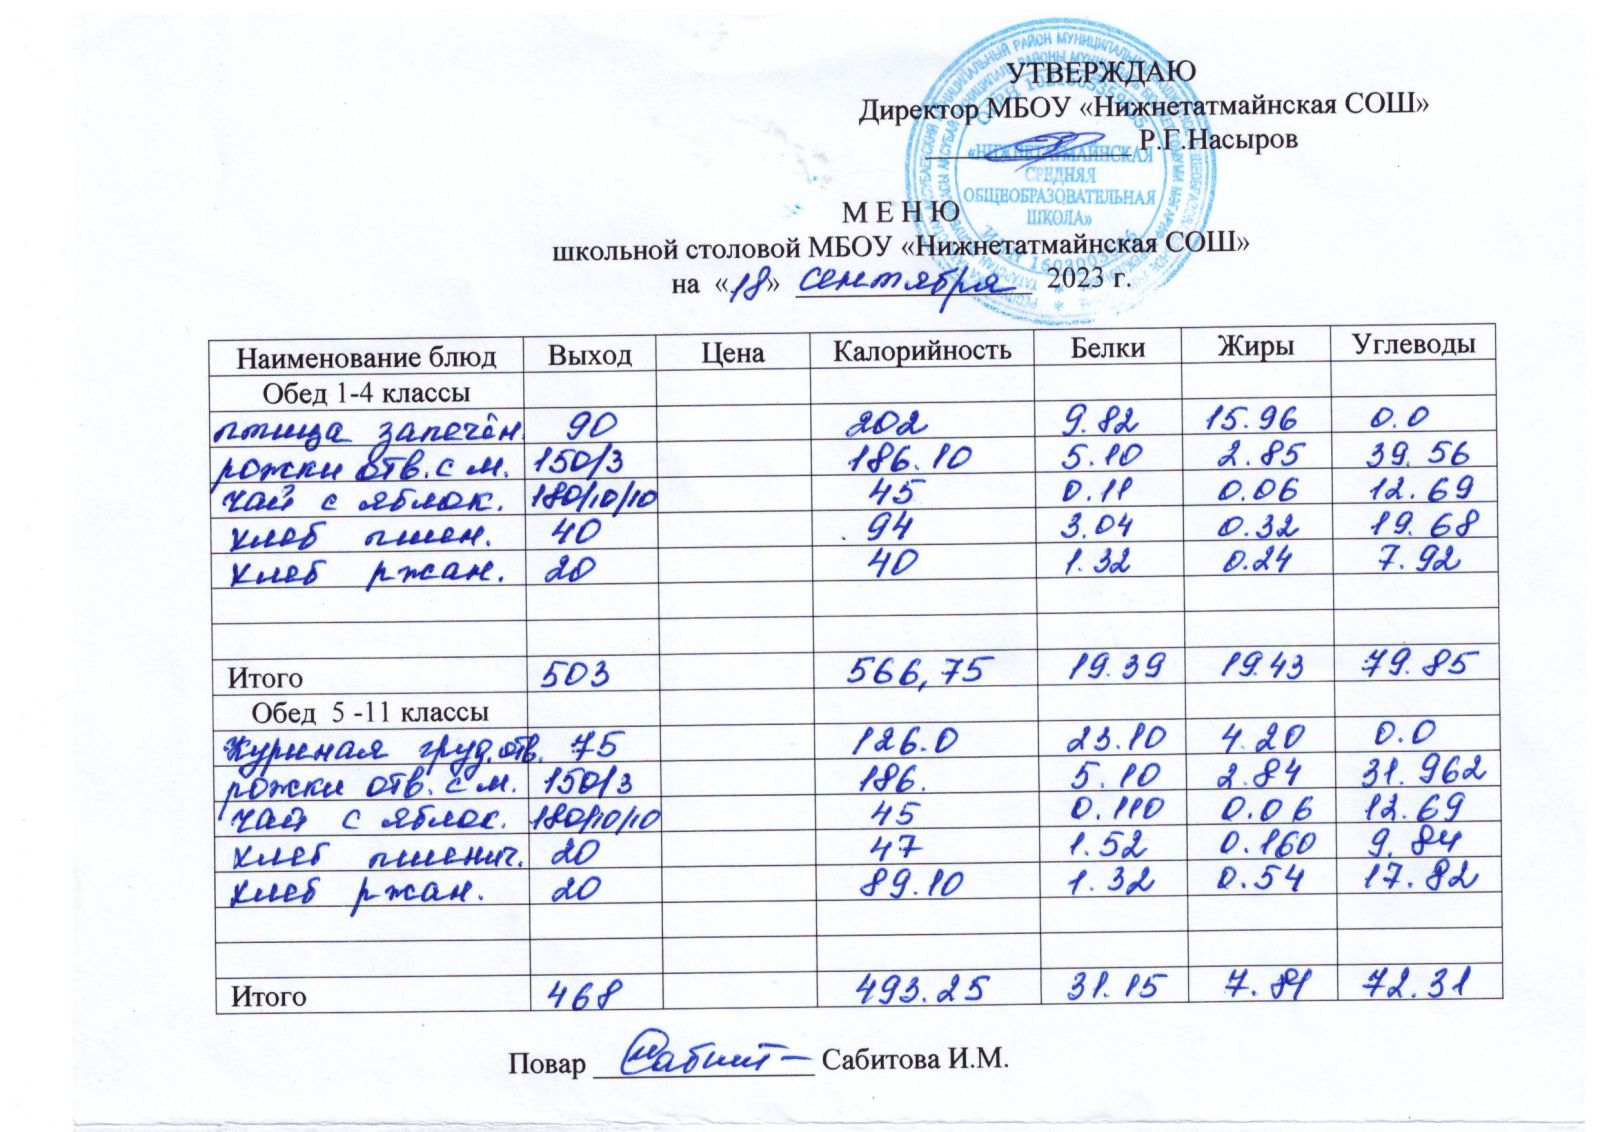 УТВЕРЖДАЮ
Директор МБОУ «Нижнетатмайнская СОШ»
Р.Г.Насыров
«НИЖНЕТАТМАЙНСКАЯ
СРЕДНЯЯ
ОБЩЕОБРАЗОВАТЕЛЬНАЯ
ШКОЛА»
М Е Н Ю
школьной столовой МБОУ «Нижнетатмайнская СОШ»
на «18» сентября 2023 г.
Наименование блюд Выход Цена Калорийность Белки Жиры Углеводы
Обед 1-4 классы
птица запечён. 90 202 9.82 15.96 0.0
рожки отв. с м. 150/3 186.10 5.10 2.85 39.56
чай с яблок. 180/10/10 45 0.11 0.06 12.69
хлеб пшен. 40 94 3.04 0.32 19.68
хлеб ржан. 20 40 1.32 0.24 7.92
Итого 503 566,75 19.39 19.43 79.85
Обед 5 -11 классы
Куриная груд. отв. 75 126.0 23.10 4.20 0.0
рожки отв. с м. 150/3 186. 5.10 2.84 31.962
чай с яблок. 180/10/10 45 0.110 0.06 12.69
хлеб пшенич. 20 47 1.52 0.160 9.84
хлеб ржан. 20 89.10 1.32 0.54 17.82
Итого 468 493.25 31.15 7.81 72.31
Повар Сабит Сабитова И.М.